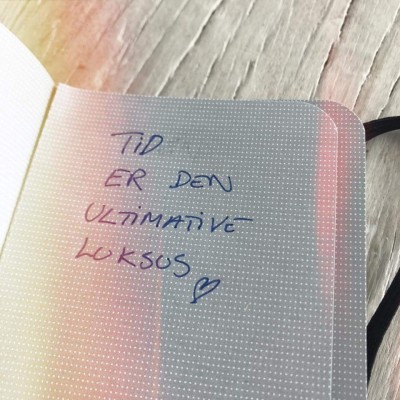 TiD
ER DEN
ULTiMATiVE
LUKSUS